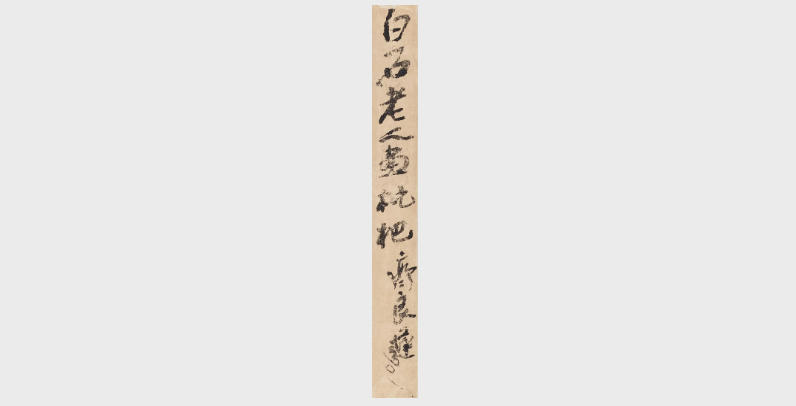 白石老人画枇杷 齊良遲